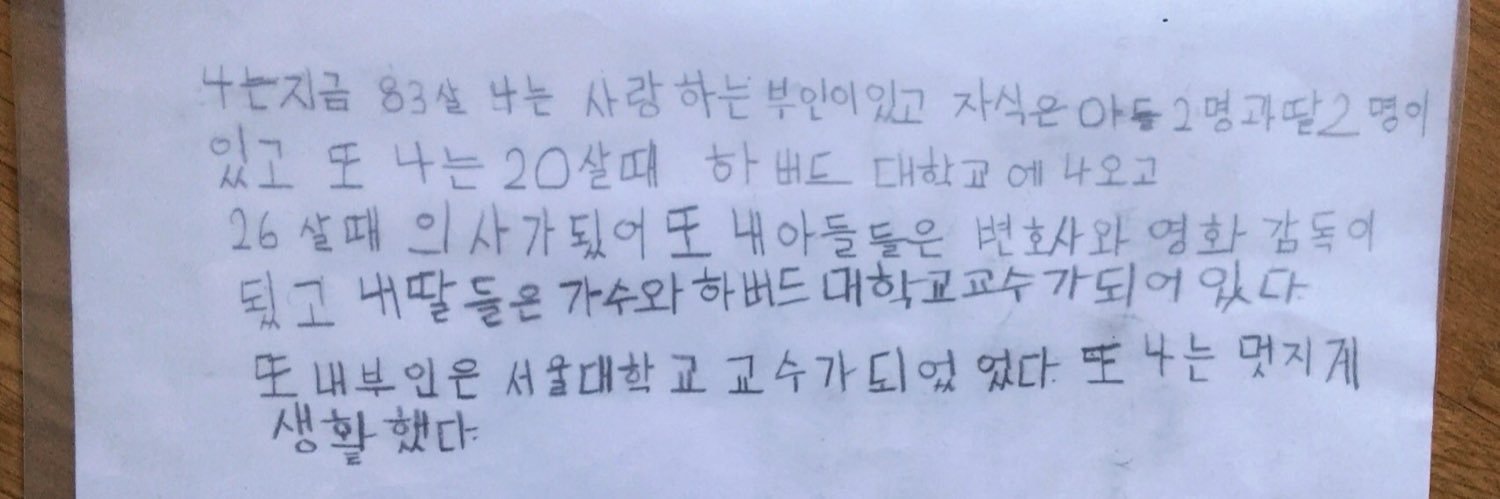 나는지금 83살 나는 사랑하는부인이있고 자식은 아들2명과딸2명이
있고 또 나는20살때 하버드 대학교에나오고
26살때 의사가됬어 또 내아들들은 변호사와 영화 감독이
됬고 내딸들은 가수와하버드대학교교수가되어있다.
또 내부인은 서울대학교교수가되었었다. 또 나는 멋지게
생활했다.